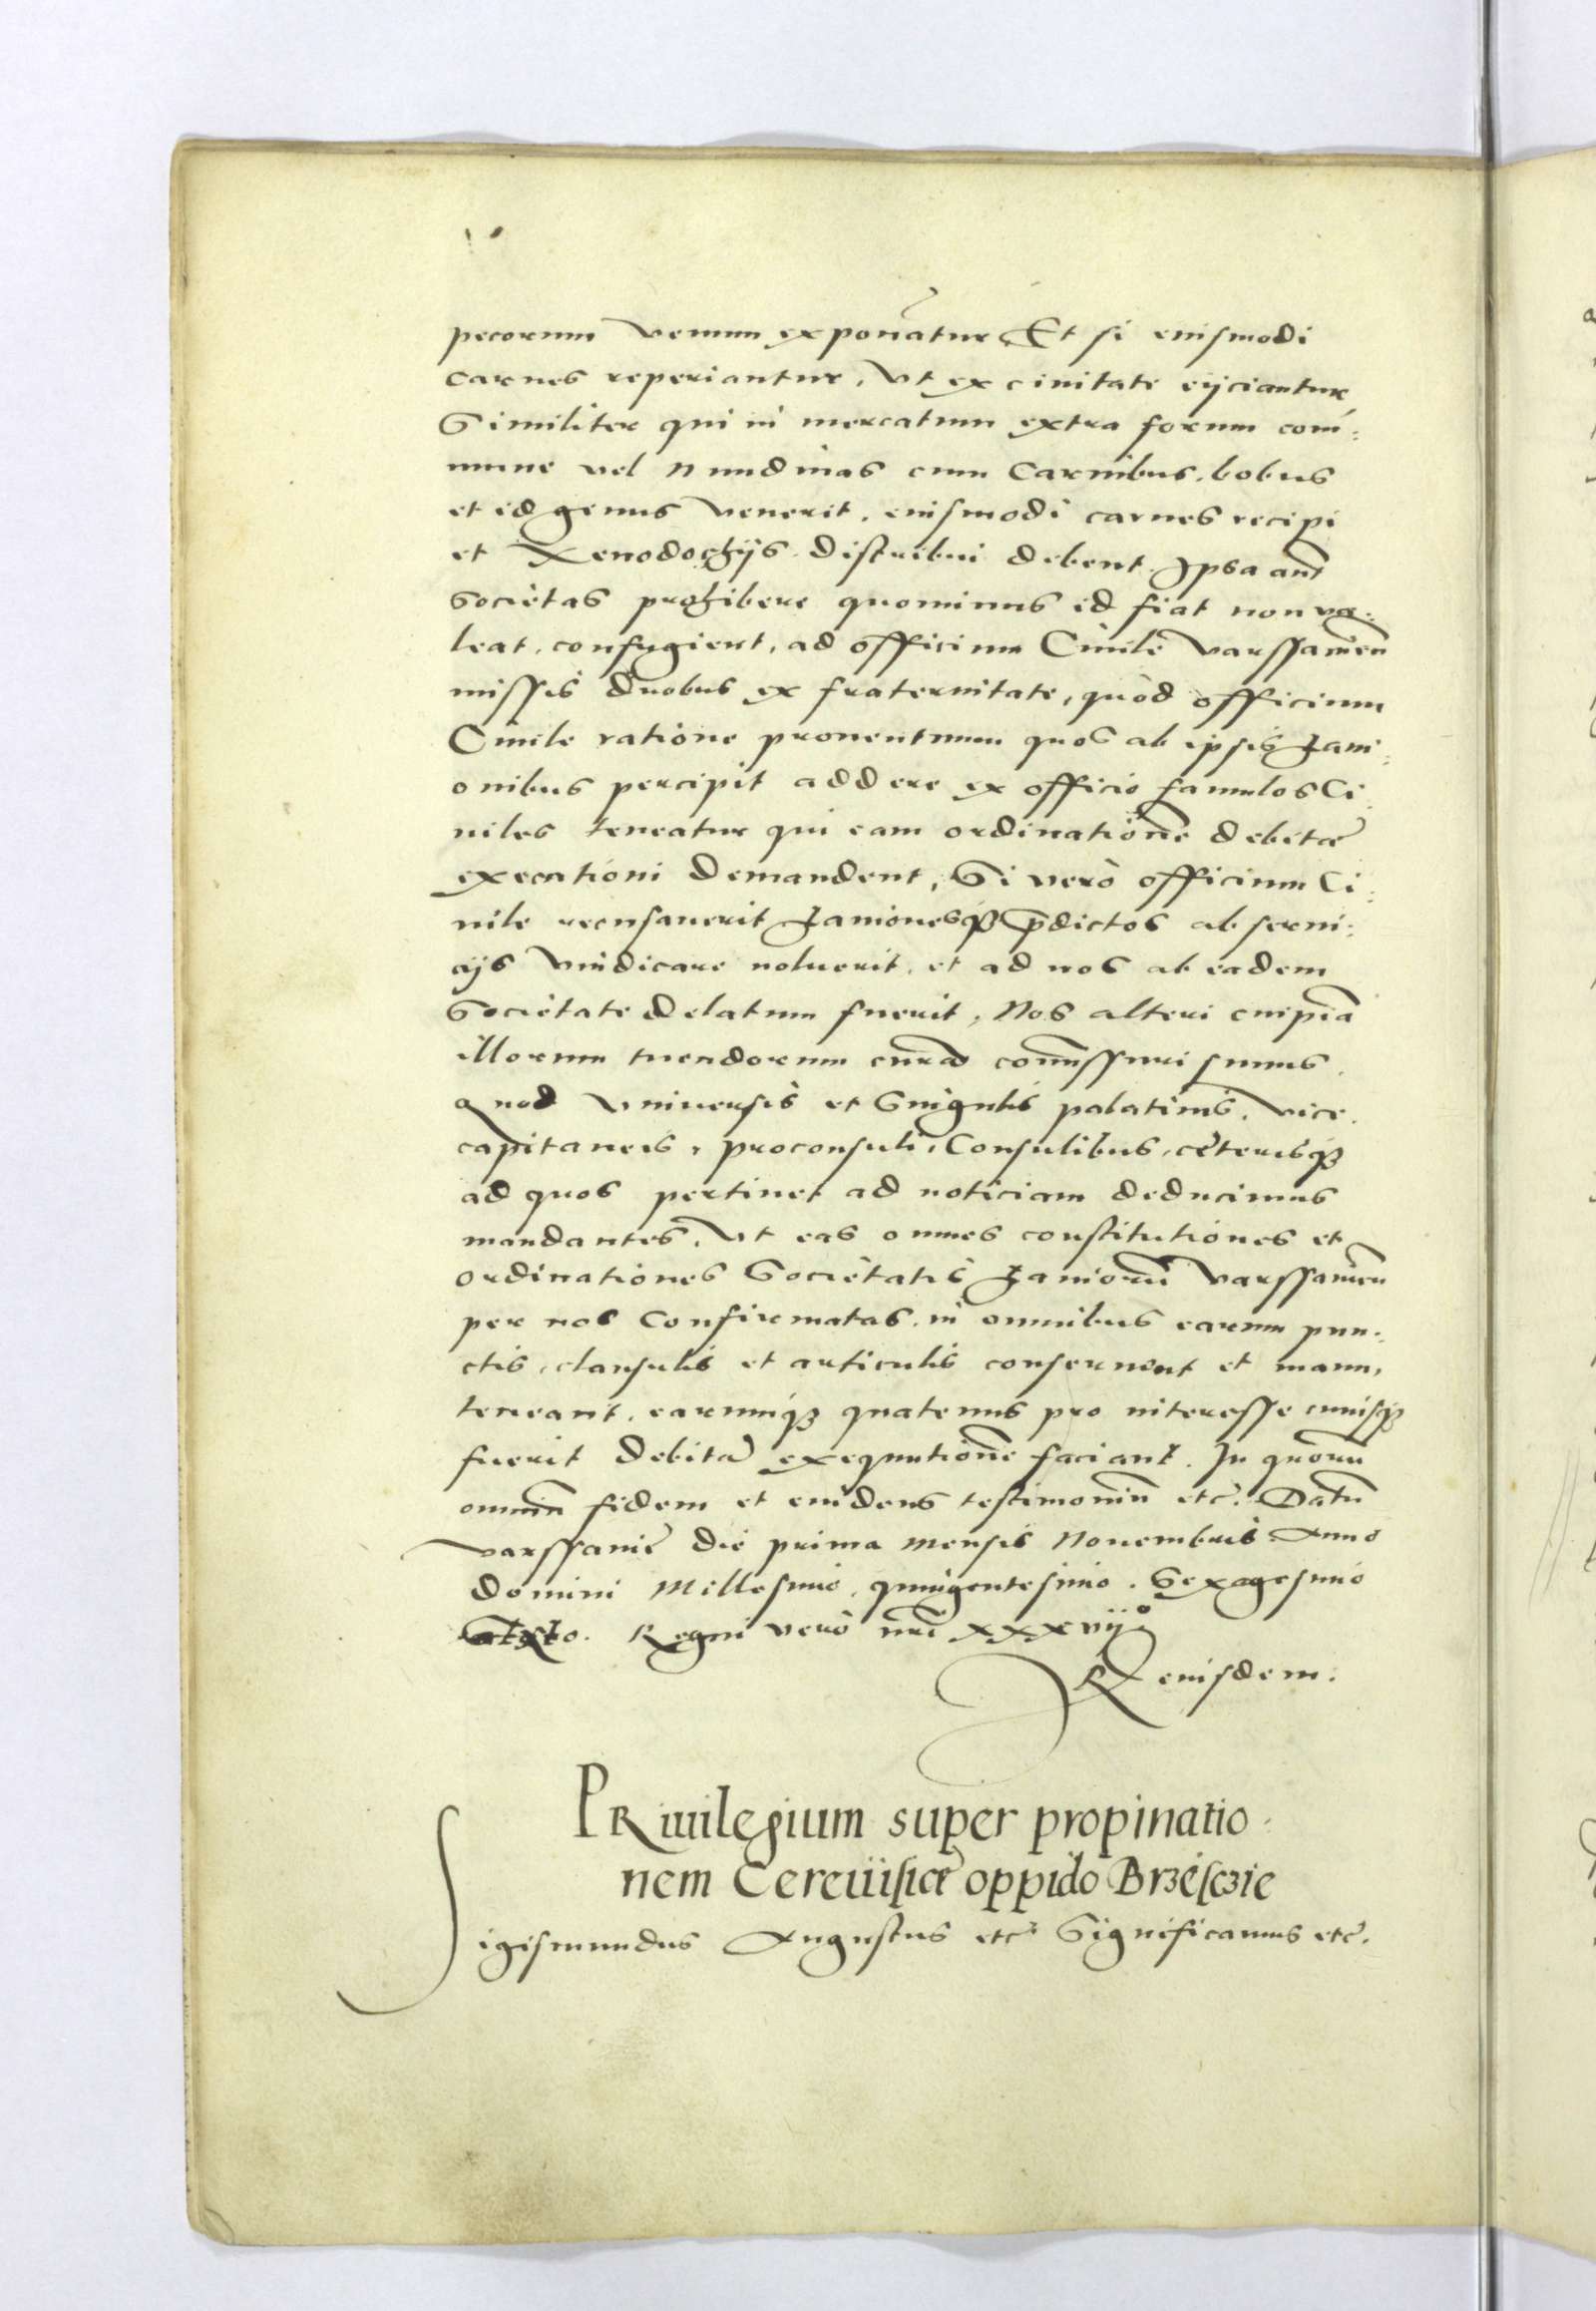 pecorum venum exponãtur. Et si eiusmodi
carnes reperiantur, vt ex ciuitate eijciantur,
Similiter qui in mercatum extra forum com:
mune vel Nundinas cum carnibus, bobus
et id genus venerit, eiusmodi carnes recipi
et Xenodochijs distribui debent. Ipsa aut̃
Societas prohibere quominus id fiat non va:
leat, confugient, ad officium Ciuile Varssauien̄
missis duobus ex fraternitate, quòd officium
Ciuile ratione prouentuum quos ab ipsis Lani:
onibus percipit addere ex officio famulos Ci:
uiles teneatur qui eam ordinationẽ debitæ
executioni demandent, Si verò officium Ci:
uile recusauerit Lanionesqȝ p̃dictos ab serui:
cijs vindicare noluerit, et ad nos ab eadem
Societate delatum fuerit, Nos alteri cuipiã
illorum tuendorum curã com̃issuri sumus.
Quod vniuersis et singulis palatinis, vice.
capitaneis, proconsuli, Consulibus, cęterisqȝ
ad quos pertinet ad noticiam deducimus
mandantes, vt eas omnes constitutiones et
ordinationes Societatis Laniorũ Varssauien̄
per nos confirmatas, in omnibus earum pun:
ctis, clausulis et articulis conseruent et manu,
teneant, earumqȝ quatenus pro interesse cuiusqȝ
fuerit debitã exequutionẽ faciant. In quorũ
omniũ fidem et euidens testimoniũ etc̃. Datũ
Varssauiæ die prima mensis Nouembris Anno
domini Millesimo, quingentesimo, Sexagesimo
Regni verò nr̃i xxxvijº
R eiusdem.
PRiuilegium super propinatio.
nem Cereuisiæ oppido Brzésczie
Sigismundus Augustus etc̃ Significamus etc̃.